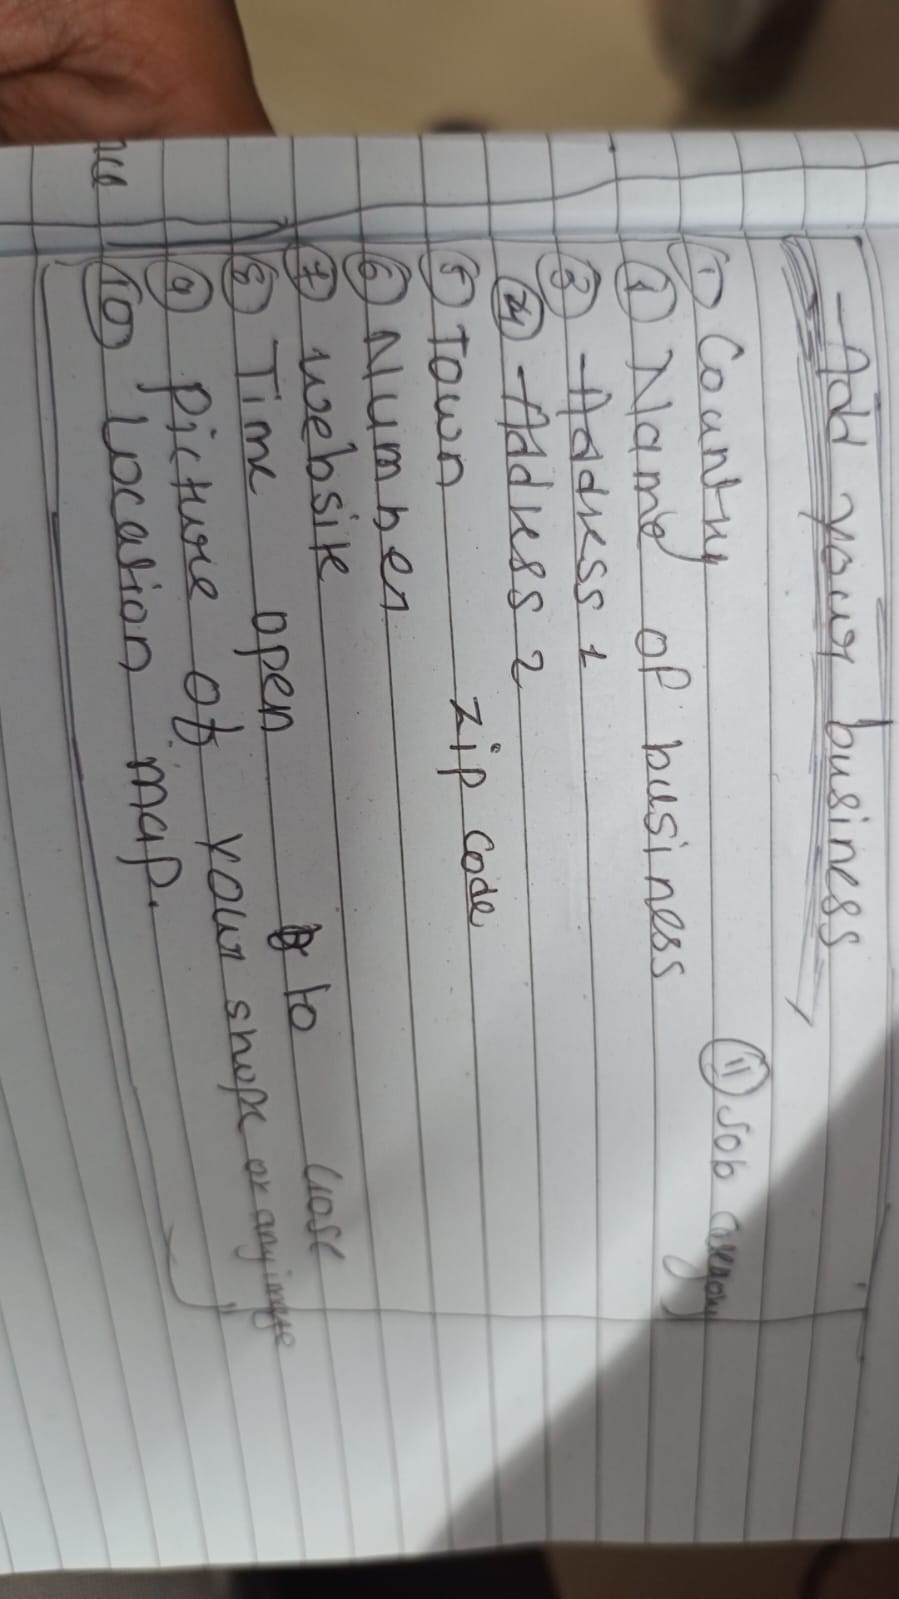 Add your business
① Country
⑪ Job Category
② Name of business
③ Address 1
④ Address 2
⑤ Town zip code
⑥ Number
⑦ website
⑧ Time open to close
⑨ picture of your shope or any image
⑩ Location map.